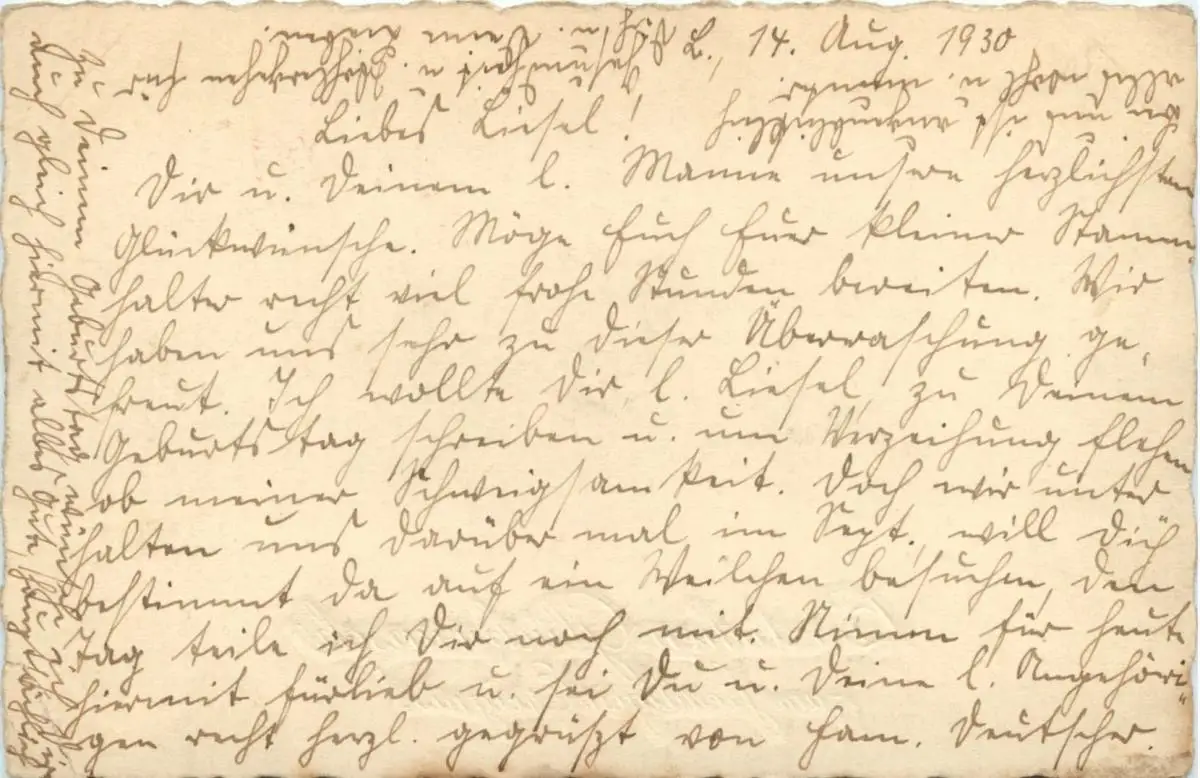 L., 14. Aug. 1930
Liebes Liesel!
Dir u. Deinem l. Manne unsere herzlichsten
Glückwünsche. Möge Euch Euer kleiner Stamm-
halter recht viel frohe Stunden bereiten. Wir
haben uns sehr zu dieser Überraschung ge-
freut. Ich wollte Dir, l. Liesel, zu Deinem
Geburtstag schreiben u. um Verzeihung flehen
ob meiner Schweigsamkeit. Doch wir unter
halten uns darüber mal im Sept., will Dich
bestimmt da auf ein Weilchen besuchen, den
Tag teile ich Dir noch mit. Nimm für heute
hiermit fürlieb u. sei Du u. Deine l. Angehöri-
gen recht herzl. gegrüszt von Fam. Deutscher.
Zu Deinem Geburtstag wünsche ich Dir
auch gleich hiermit alles Gute, hauptsächlich